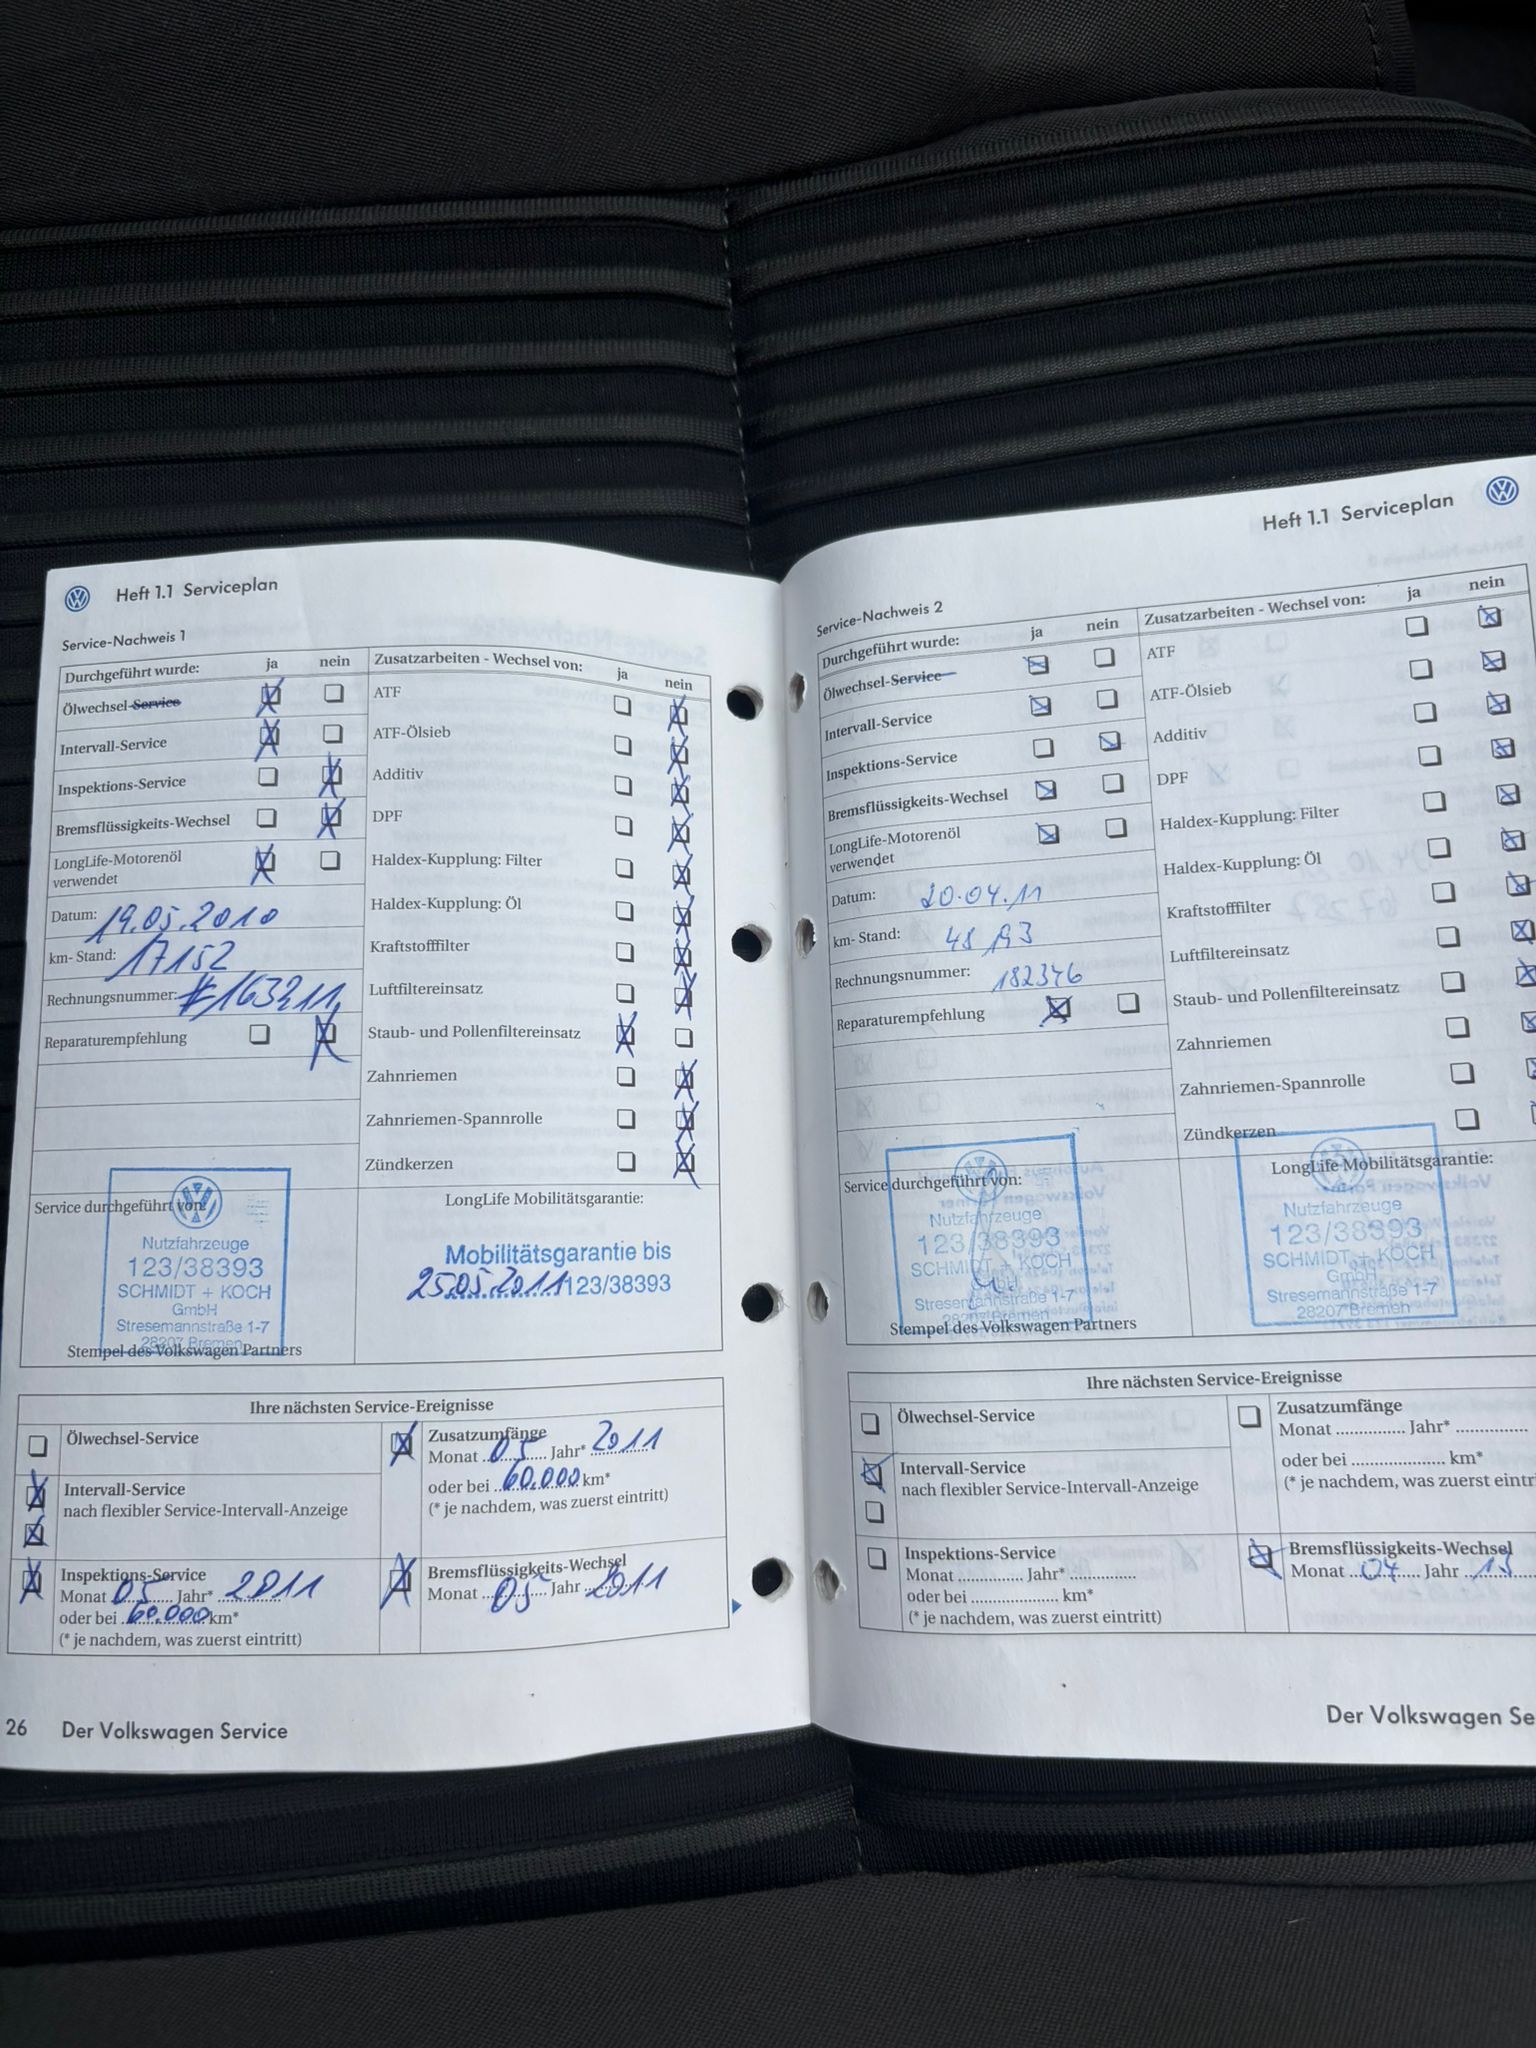 Heft 1.1 Serviceplan
Service-Nachweis 1
Durchgeführt wurde: ja nein
Ölwechsel-Service
Intervall-Service
Inspektions-Service
Bremsflüssigkeits-Wechsel
LongLife-Motorenöl
verwendet
Datum: 19.05.2010
km- Stand: 17152
Rechnungsnummer: #163211
Reparaturempfehlung
Zusatzarbeiten - Wechsel von: ja nein
ATF
ATF-Ölsieb
Additiv
DPF
Haldex-Kupplung: Filter
Haldex-Kupplung: Öl
Kraftstofffilter
Luftfiltereinsatz
Staub- und Pollenfiltereinsatz
Zahnriemen
Zahnriemen-Spannrolle
Zündkerzen
Service durchgeführt von:
Nutzfahrzeuge
123/38393
SCHMIDT + KOCH
GmbH
Stresemannstraße 1-7
28207 Bremen
Stempel des Volkswagen Partners
LongLife Mobilitätsgarantie:
Mobilitätsgarantie bis
25.05.2011 123/38393
Ihre nächsten Service-Ereignisse
Ölwechsel-Service
Intervall-Service
nach flexibler Service-Intervall-Anzeige
Inspektions-Service
Monat 05 Jahr* 2011
oder bei 60.000 km*
(* je nachdem, was zuerst eintritt)
Zusatzumfänge
Monat 05 Jahr* 2011
oder bei 60.000 km*
(* je nachdem, was zuerst eintritt)
Bremsflüssigkeits-Wechsel
Monat 05 Jahr 2011
26 Der Volkswagen Service
Heft 1.1 Serviceplan
Service-Nachweis 2
Durchgeführt wurde: ja nein
Ölwechsel-Service
Intervall-Service
Inspektions-Service
Bremsflüssigkeits-Wechsel
LongLife-Motorenöl
verwendet
Datum: 20.04.11
km- Stand:
Rechnungsnummer: 182346
Reparaturempfehlung
Zusatzarbeiten - Wechsel von: ja nein
ATF
ATF-Ölsieb
Additiv
DPF
Haldex-Kupplung: Filter
Haldex-Kupplung: Öl
Kraftstofffilter
Luftfiltereinsatz
Staub- und Pollenfiltereinsatz
Zahnriemen
Zahnriemen-Spannrolle
Zündkerzen
Service durchgeführt von:
Nutzfahrzeuge
123/38393
SCHMIDT + KOCH
GmbH
Stresemannstraße 1-7
28207 Bremen
Stempel des Volkswagen Partners
LongLife Mobilitätsgarantie:
Nutzfahrzeuge
123/38393
SCHMIDT + KOCH
GmbH
Stresemannstraße 1-7
28207 Bremen
Ihre nächsten Service-Ereignisse
Ölwechsel-Service
Intervall-Service
nach flexibler Service-Intervall-Anzeige
Inspektions-Service
Monat Jahr*
oder bei km*
(* je nachdem, was zuerst eintritt)
Zusatzumfänge
Monat Jahr*
oder bei km*
(* je nachdem, was zuerst eintr
Bremsflüssigkeits-Wechsel
Monat 04 Jahr 13
Der Volkswagen Se